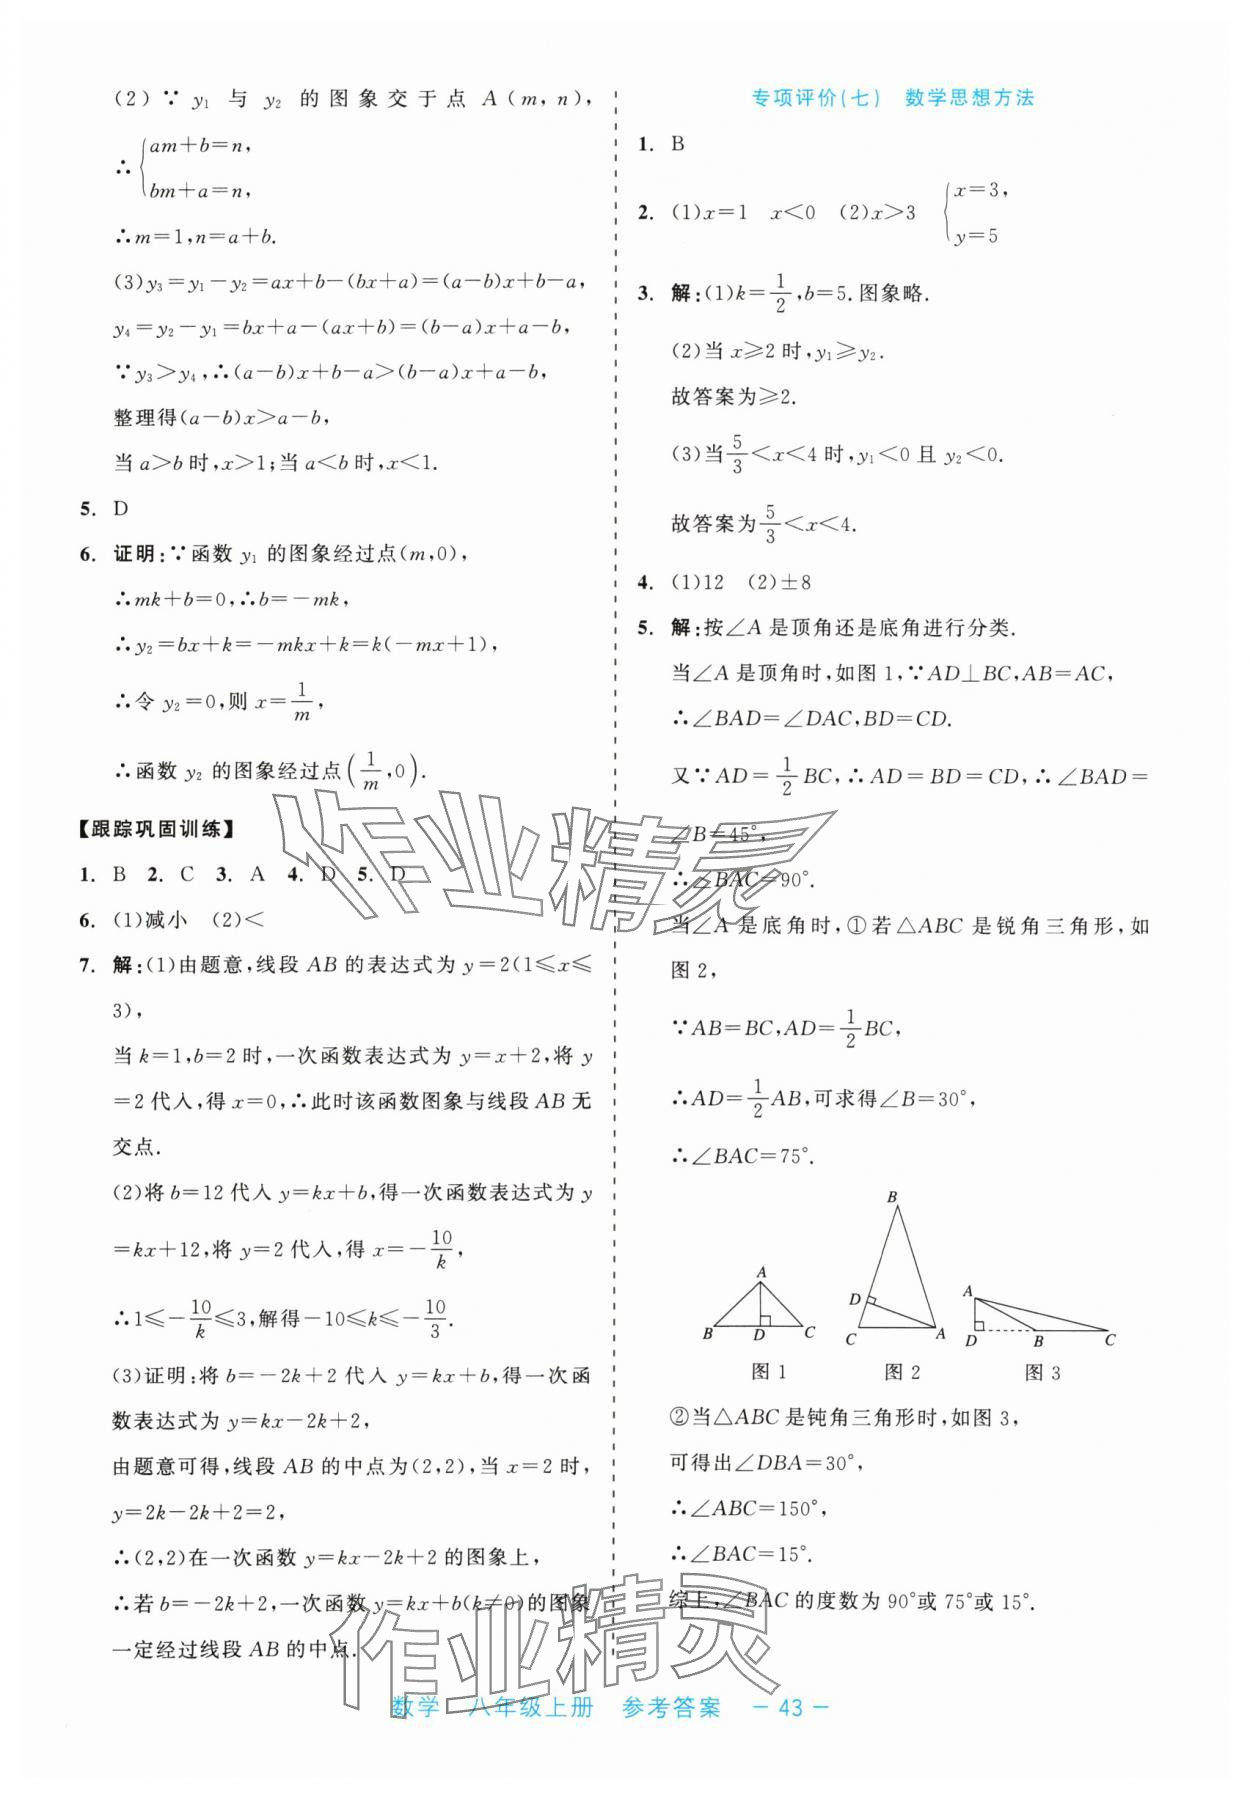 (2)∵ y₁ 与 y₂ 的图象交于点 A(m,n),
∴{am+b=n,
bm+a=n,
∴m=1,n=a+b.
(3)y₃=y₁-y₂=ax+b-(bx+a)=(a-b)x+b-a,
y₄=y₂-y₁=bx+a-(ax+b)=(b-a)x+a-b,
∵y₃>y₄,∴(a-b)x+b-a>(b-a)x+a-b,
整理得(a-b)x>a-b,
当 a>b 时,x>1;当 a<b 时,x<1.
5. D
6. 证明:∵函数 y₁ 的图象经过点(m,0),
∴mk+b=0,∴b=-mk,
∴y₂=bx+k=-mkx+k=k(-mx+1),
∴令 y₂=0,则 x=1/m,
∴函数 y₂ 的图象经过点(1/m,0).
【跟踪巩固训练】
1. B 2. C 3. A 4. D 5. D
6. (1)减小 (2)<
7. 解:(1)由题意,线段 AB 的表达式为 y=2(1≤x≤
3),
当 k=1,b=2 时,一次函数表达式为 y=x+2,将 y
=2 代入,得 x=0,∴此时该函数图象与线段 AB 无
交点.
(2)将 b=12 代入 y=kx+b,得一次函数表达式为 y
=kx+12,将 y=2 代入,得 x=-10/k,
∴1≤-10/k≤3,解得-10≤k≤-10/3.
(3)证明:将 b=-2k+2 代入 y=kx+b,得一次函
数表达式为 y=kx-2k+2,
由题意可得,线段 AB 的中点为(2,2),当 x=2 时,
y=2k-2k+2=2,
∴(2,2)在一次函数 y=kx-2k+2 的图象上,
∴若 b=-2k+2,一次函数 y=kx+b(k≠0)的图象
一定经过线段 AB 的中点.
专项评价(七) 数学思想方法
1. B
2. (1)x=1 x<0 (2)x>3 {x=3,
y=5
3. 解:(1)k=1/2,b=5.图象略.
(2)当 x≥2 时,y₁≥y₂.
故答案为≥2.
(3)当5/3<x<4 时,y₁<0 且 y₂<0.
故答案为5/3<x<4.
4. (1)12 (2)±8
5. 解:按∠A 是顶角还是底角进行分类.
当∠A 是顶角时,如图 1,∵AD⊥BC,AB=AC,
∴∠BAD=∠DAC,BD=CD.
又∵AD=1/2BC,∴AD=BD=CD,∴∠BAD=
∠B=45°,
∴∠BAC=90°.
当∠A 是底角时,①若△ABC 是锐角三角形,如
图 2,
∵AB=BC,AD=1/2BC,
∴AD=1/2AB,可求得∠B=30°,
∴∠BAC=75°.
A
B D C
图 1
B
D
C A
图 2
A
D B C
图 3
②当△ABC 是钝角三角形时,如图 3,
可得出∠DBA=30°,
∴∠ABC=150°,
∴∠BAC=15°.
综上,∠BAC 的度数为 90°或 75°或 15°.
作业精灵
作业精灵
数学 八年级上册 参考答案 -43-